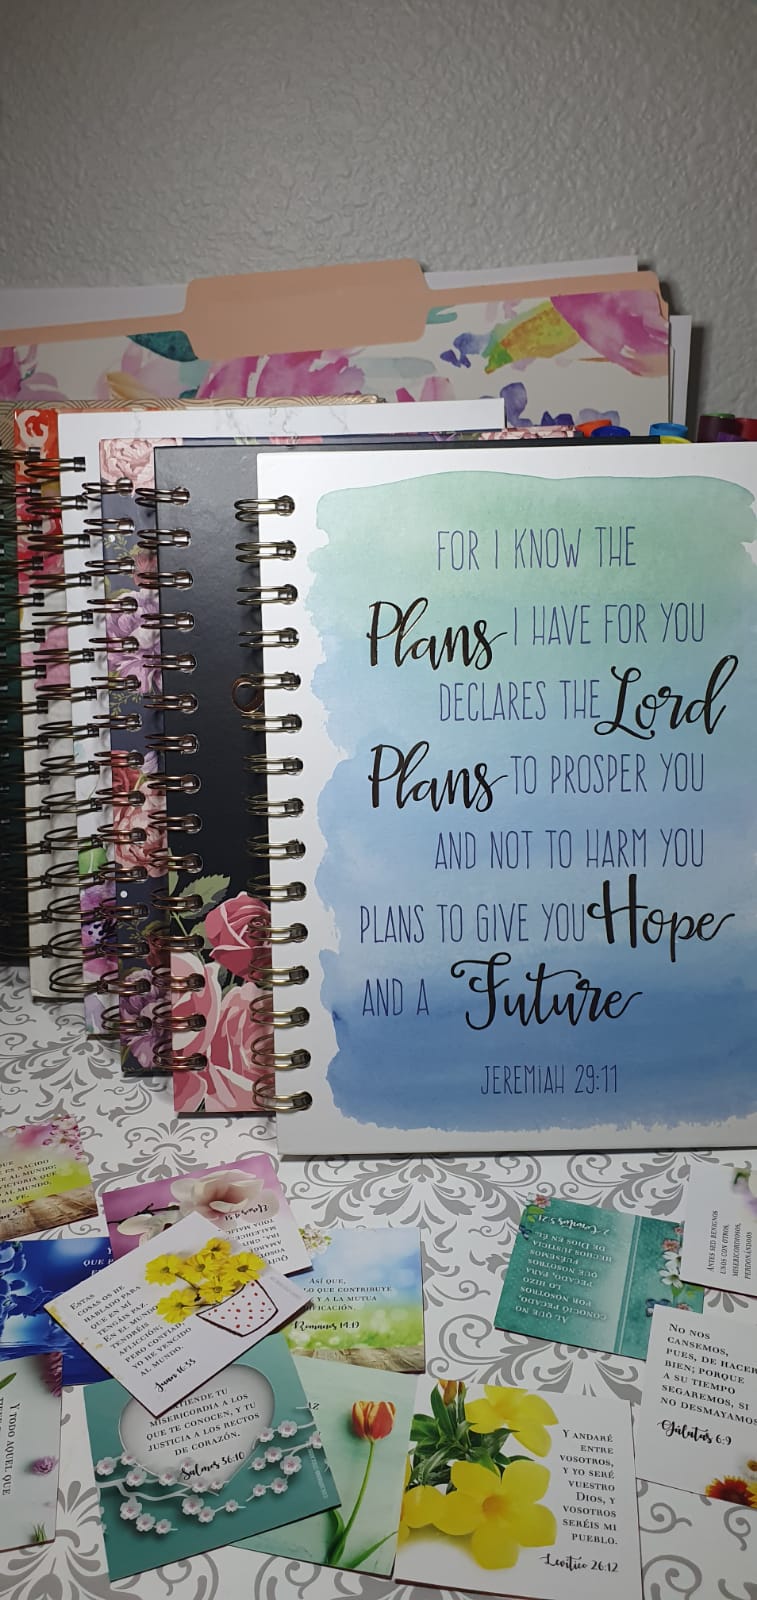 FOR I KNOW THE
Plans I HAVE FOR YOU
DECLARES THE Lord
Plans TO PROSPER YOU
AND NOT TO HARM YOU
PLANS TO GIVE YOU Hope
AND A Future
JEREMIAH 29:11
ES NACIDO
AL MUNDO;
AL MUNDO,
FE.
ESTAS
COSAS OS HE
HABLADO PARA
QUE EN MÍ
TENGÁIS PAZ.
EN EL MUNDO
TENDRÉIS
AFLICCIÓN;
PERO CONFIAD,
YO HE VENCIDO
AL MUNDO.
Juan 16:33
ASÍ QUE,
LO QUE CONTRIBUYE
Y A LA MUTUA
Romanos 14:19
AL QUE NO
CONOCIÓ PECADO,
POR NOSOTROS
LO HIZO
PECADO, PARA
QUE NOSOTROS
FUÉSEMOS
HECHOS JUSTICIA
DE DIOS EN ÉL.
2 Corintios 5:21
ANTES SED BENIGNOS
UNOS CON OTROS,
MISERICORDIOSOS,
PERDONÁNDOOS
NO NOS
CANSEMOS,
PUES, DE HACER
BIEN; PORQUE
A SU TIEMPO
SEGAREMOS, SI
NO DESMAYAMOS
Gálatas 6:9
TIENDE TU
MISERICORDIA A LOS
QUE TE CONOCEN, Y TU
JUSTICIA A LOS RECTOS
DE CORAZÓN.
Salmos 36:10
Y ANDARÉ
ENTRE
VOSOTROS,
Y YO SERÉ
VUESTRO
DIOS, Y
VOSOTROS
SERÉIS MI
PUEBLO.
Levítico 26:12
Y TODO AQUEL QUE